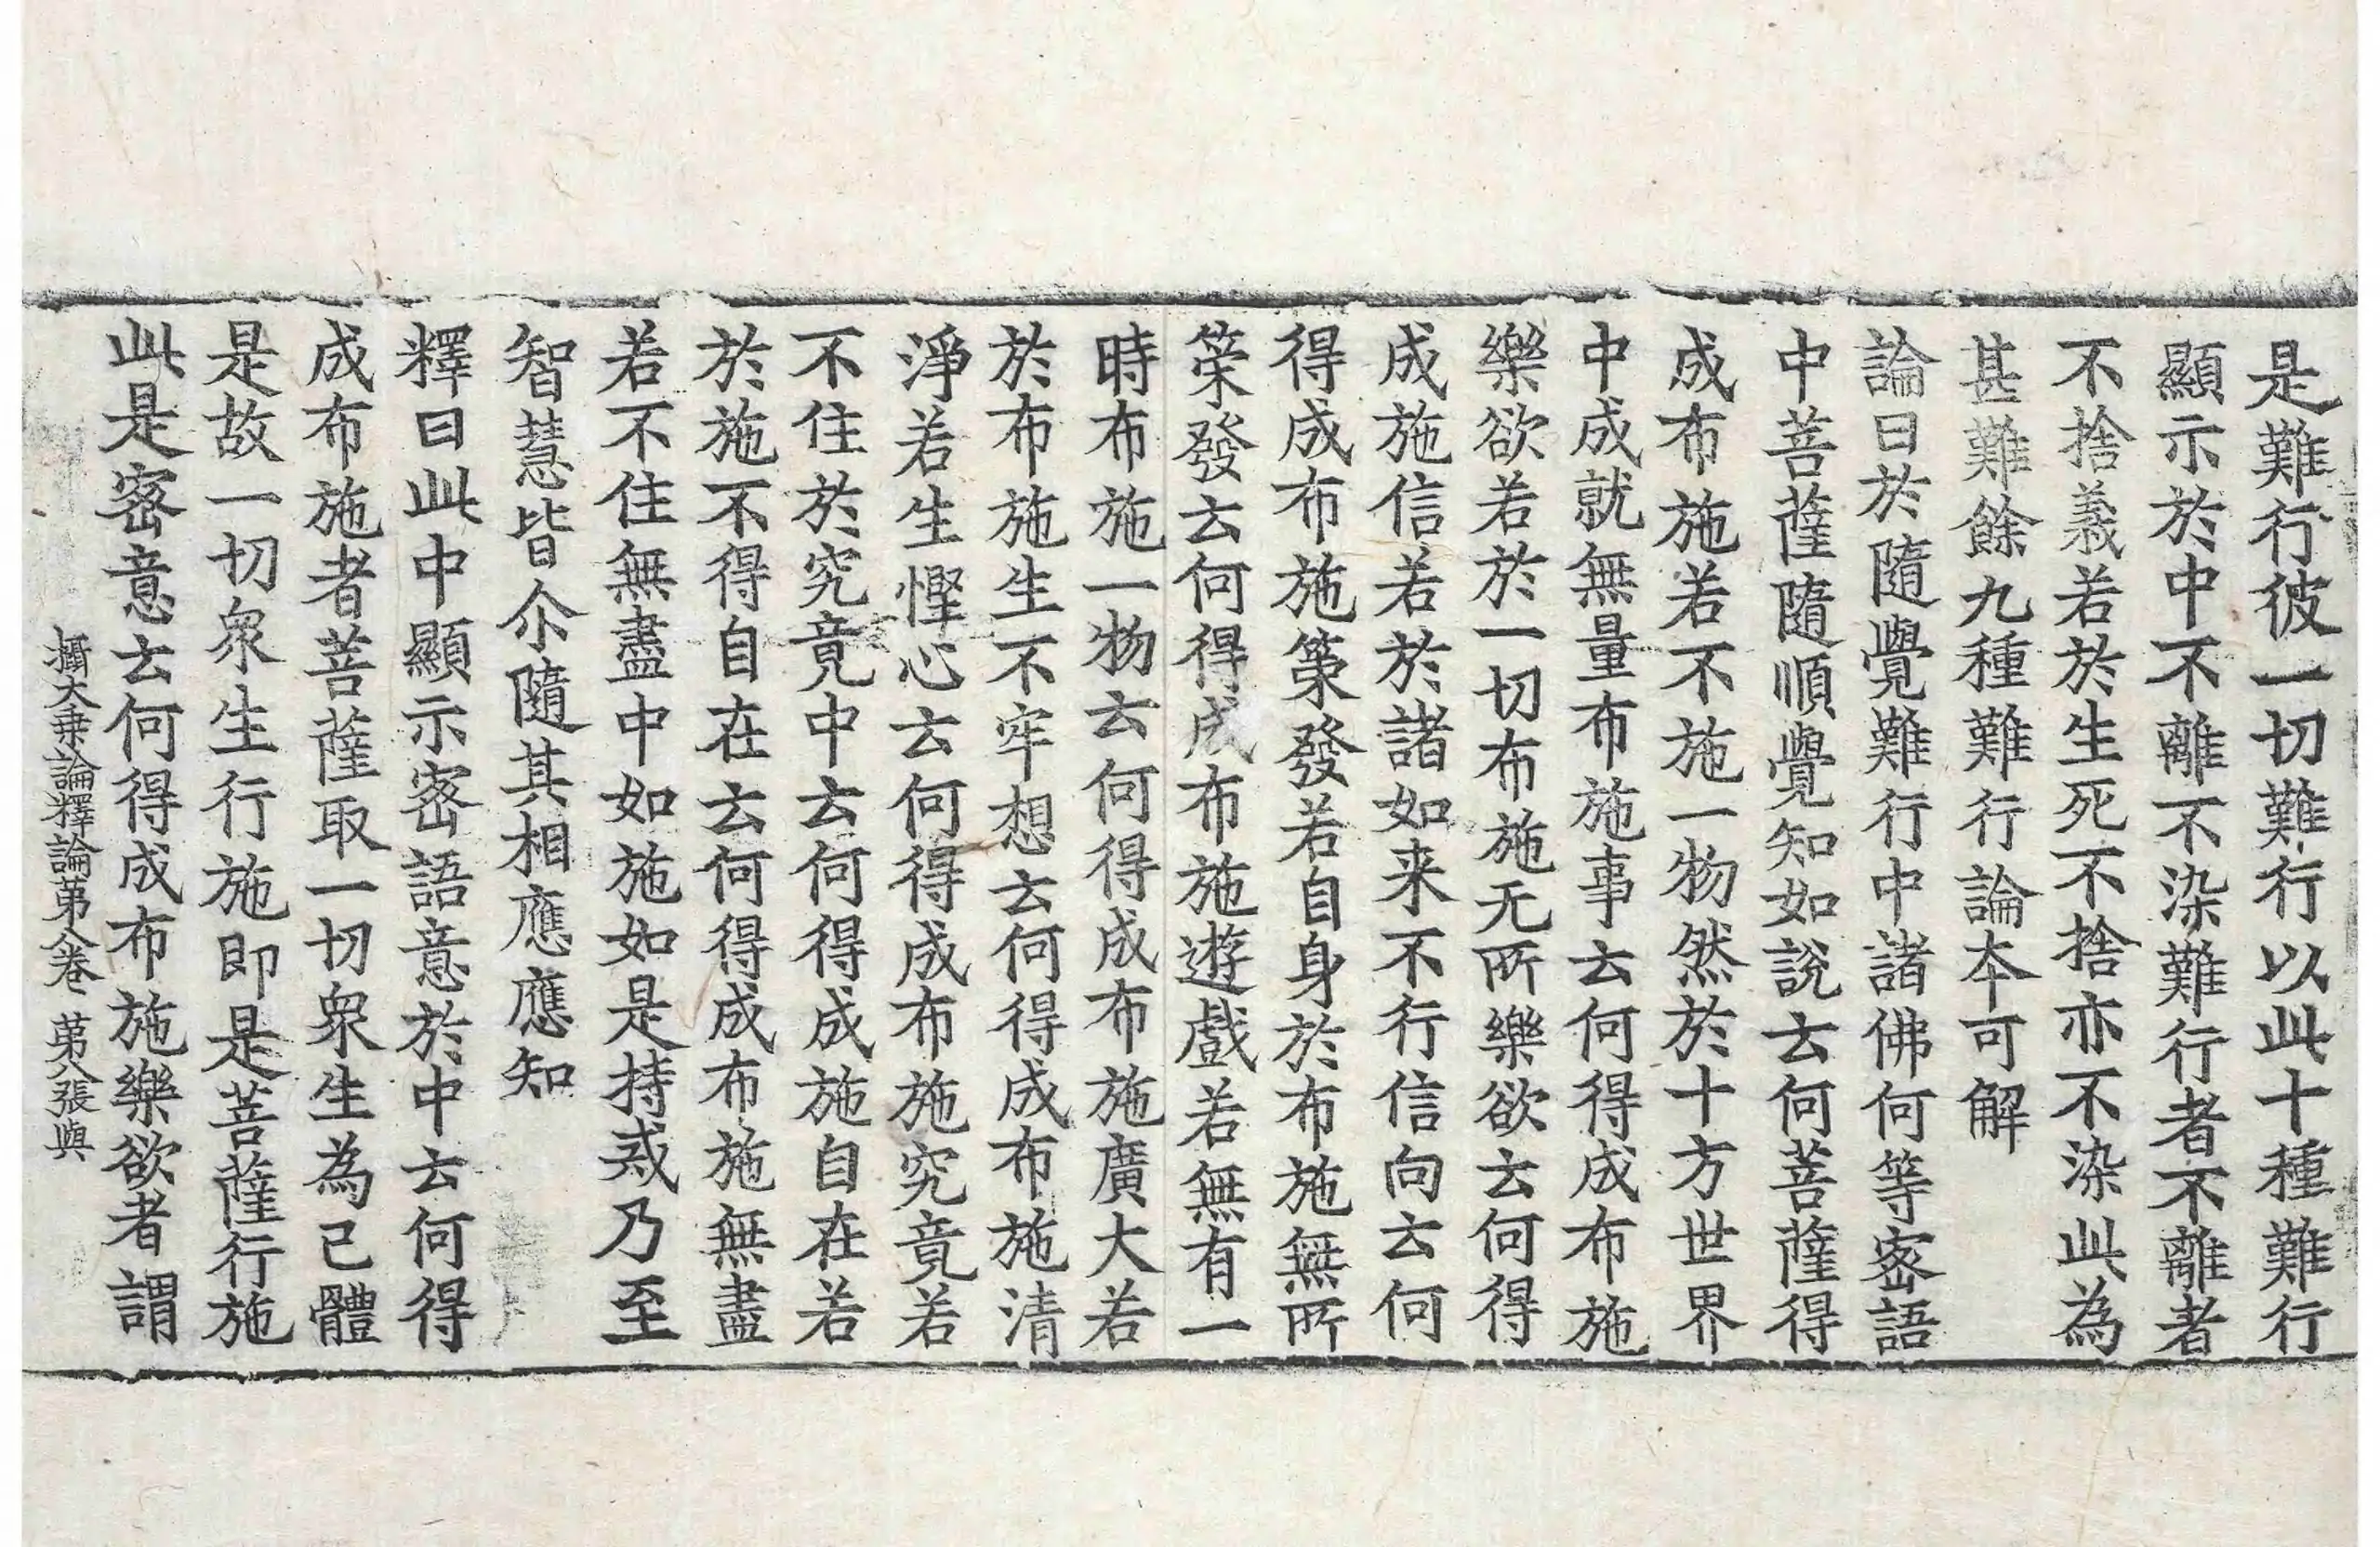 是難行彼一切難行以此十種難行
顯示於中不離不染難行者不離者
不捨義若於生死不捨亦不染此為
甚難餘九種難行論本可解
論曰於隨覺難行中諸佛何等密語
中菩薩隨順覺知如說云何菩薩得
成布施若不施一物然於十方世界
中成就無量布施事云何得成布施
樂欲若於一切布施无所樂欲云何得
成施信若於諸如来不行信向云何
得成布施策發若自身於布施無所
策發云何得成布施遊戲若無有一
時布施一物云何得成布施廣大若
於布施生不牢想云何得成布施清
淨若生慳心云何得成布施究竟若
不住於究竟中云何得成施自在若
於施不得自在云何得成布施無盡
若不住無盡中如施如是持戒乃至
智慧皆尒隨其相應應知
釋曰此中顯示密語意於中云何得
成布施者菩薩取一切衆生為己體
是故一切衆生行施即是菩薩行施
此是密意云何得成布施樂欲者謂
攝大乗論釋論第八卷 第八張 與